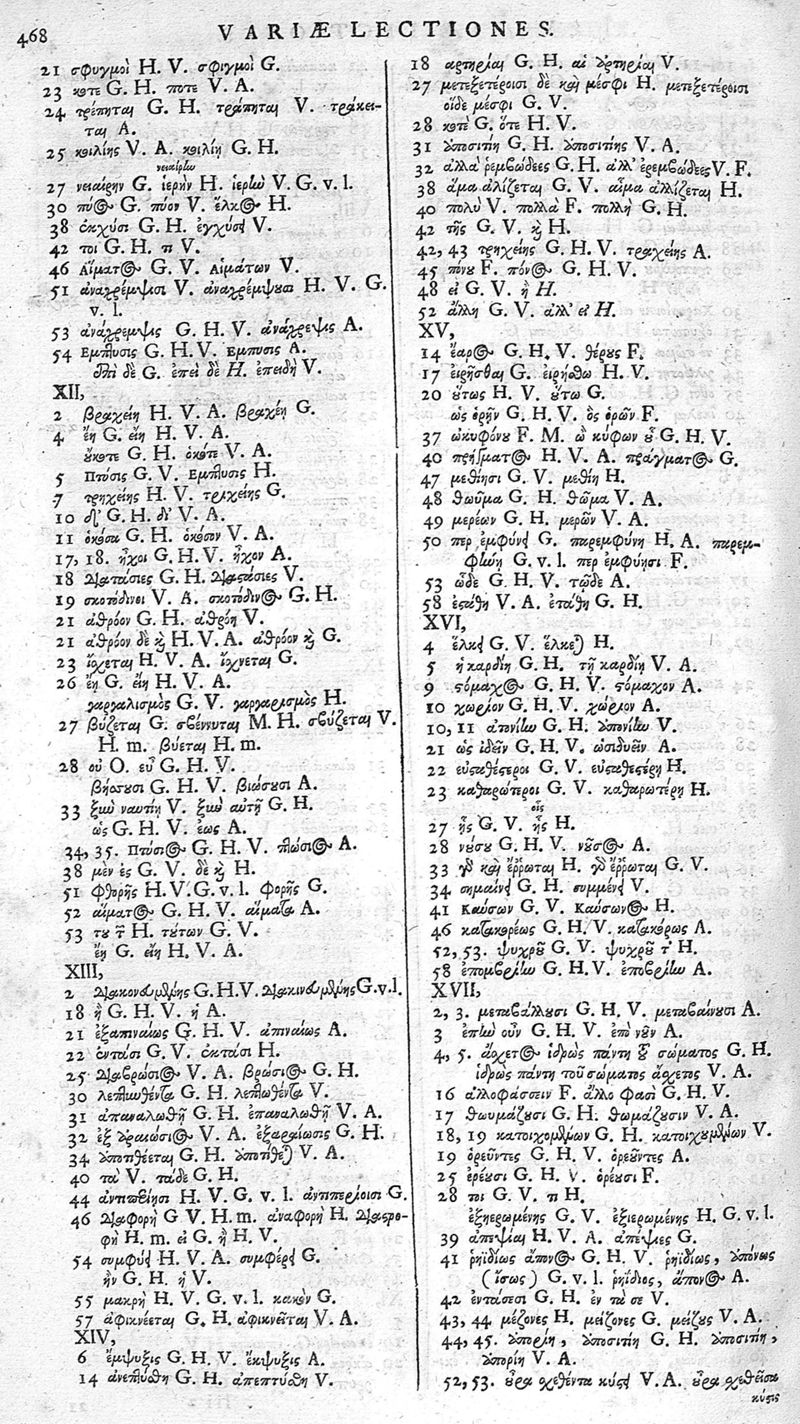 468
VARIÆ LECTIONES.
21 σφυγμοὶ H. V. σφιγμοὶ G.
23 κοτε G. H. ποτε V. A.
24 τρέπηται G. H. τράπηται V. τράκει-
ται A.
25 κοιλίης V. A. κοιλίη G. H.
νειαίρην
27 νειαίρην G. ἱερὴν H. ἱερὴν V. G. v. l.
30 πύος G. πύον V. ἕλκος H.
38 ἐκχύσι G. H. ἐγχύσει V.
42 τοι G. H. τι V.
46 Αἵματος G. V. Αἱμάτων V.
51 ἀναχρέμψισι V. ἀναχρέμψουσι H. V. G.
v. l.
53 ἀνάχρεμψις G. H. V. ἀνάχρεψις A.
54 Εμπτυσις G. H. V. Εμπυσις A.
ἐπὶ δὲ G. ἐπεὶ δὲ H. ἐπειδὴ V.
XII,
2 βραχείη H. V. A. βραχέη G.
4 ἔῃ G. εἴη H. V. A.
οὔκοτε G. H. ὁκότε V. A.
5 Πτύσις G. V. Εμπτυσις H.
7 τρηχείης H. V. τραχείης G.
10 δι' G. H. δἰ V. A.
11 ὁκόσα G. H. ὁκόσον V. A.
17, 18. ἦχοι G. H. V. ἦχον A.
18 Διατάσιες G. H. Διαστάσιες V.
19 σκοτόδινοι V. A. σκοτόδινος G. H.
21 ἀθρόον G. H. ἀθρόη V.
21 ἀθρόον δὲ καὶ H. V. A. ἀθρόον καὶ G.
23 ἴσχεται H. V. A. ἴχνεται G.
26 ἔῃ G. εἴη H. V. A.
γαργαλισμὸς G. V. γαργαρισμὸς H.
27 βύζεται G. σβέννυται M. H. σβύζεται V.
H. m. βύεται H. m.
28 οὐ O. εὖ G. H. V.
βήσουσι G. H. V. βιώσουσι A.
33 ξὺν ναυτίη V. ξὺν αὐτῆ G. H.
ὡς G. H. V. ἕως A.
34, 35. Πτύσιος G. H. V. πλώσιος A.
38 μὲν ἐς G. V. δὲ καὶ H.
51 φθορῆς H. V. G. v. l. φορῆς G.
52 αἵματος G. H. V. αἵματα A.
53 του τ H. τύτων G. V.
ἔῃ G. εἴη H. V. A.
XIII,
2 G. H. V. G. v. l.
18 ἢ G. H. V. ἡ A.
21 ἐξαπιναίως G. H. V. ἀπιναίως A.
22 ἐντάσι G. V. ἐκτάσι H.
25 Διαβρώσιος V. A. βρώσιος G. H.
30 λεπτωθέντα G. H. λεπτωθέντα V.
31 ἀπαναλωθῇ G. H. ἐπαναλωθῇ V. A.
32 ἐξ ἀραιώσιος V. A. ἐξαραίωσις G. H.
34 ὑποτιθέεται G. H. ὑποτίθεται V. A.
40 τὰ V. τάδε G. H.
44 H. V. G. v. l. G.
46 Διαφορὴ G V. H. m. ἀναφορὴ H. Διατρο-
φὴ H. m. εἰ G. ἢ H. V.
54 συμφύει H. V. A. συμφέρει G.
ἢν G. H. ἡ V.
55 μακρὴ H. V. G. v. l. κακὸν G.
57 ἀφικνέεται G. H. ἀφικνεῖται V. A.
XIV,
6 ἔμψυξις G. H. V. ἔκψυξις A.
14 ἀνεπτύσθη G. H. ἀπεπτύσθη V.
18 ἀρτηρίαι G. H. αἱ ἀρτηρίαι V.
27 μετεξετέροισι δὲ καὶ μέσφι H. μετεξετέροισι
οἵδε μέσφι G. V.
28 κοτὲ G. ὅτε H. V.
31 ὑποσιτίη G. H. ὑποσιτίης V. A.
32 ἀλλὰ ῥεμβώδεες G. H. ἀλλ' ἐρεμβώδεες V. F.
38 ἅμα ἀλίζεται G. V. αἷμα ἀλλίζεται H.
40 πολὺ V. πολλὰ F. πολλὴ G. H.
42 τῆς G. V. καὶ H.
42, 43 τρηχείης G. H. V. τραχείης A.
45 πόνου F. πόνος G. H. V.
48 εἰ G. V. ἢ H.
52 ἄλλη G. V. ἀλλ' εἰ H.
XV,
14 ἔαρος G. H. V. θέρους F.
17 εἰρῆσθαι G. εἰρήσθω H. V.
20 οὕτως H. V. οὕτω G.
ὡς ὁρῆν G. H. V. ὃς ὁρῶν F.
37 ὠκυφόνου F. M. ὢ κύφων οὗ G. H. V.
40 πρήσματος H. V. A. πράγματος G.
47 μεθίησι G. V. μεθίη H.
48 θωῦμα G. H. θῶμα V. A.
49 μερέων G. H. μερῶν V. A.
50 περ ἐμφύνει G. παρεμφύνη H. A. παρεμ-
φύη G. v. l. περ ἐμφύησι F.
53 ὧδε G. H. V. τῷδε A.
58 ἐστάθη V. A. ἐτάθη G. H.
XVI,
4 ἕλκει G. V. ἕλκεται H.
5 ἡ καρδίη G. H. τῇ καρδίῃ V. A.
9 στόμαχος G. H. V. στόμαχον A.
10 χωρίον G. H. V. χώριον A.
10, 11 ἀπονίην G. H. ὑπονίην V.
21 ὡς ἰδεῖν G. H. V. ὡσιδυεῖν A.
22 εὐσταθέστεροι G. V. εὐσταθεστέρη H.
23 καθαρώτεροι G. V. καθαρωτέρη H.
οἷς
27 ᾗς G. V. ᾗς H.
28 νούσου G. H. V. νοῦσος A.
33 γὰρ καὶ ἔῤῥωται H. γὰρ ἔῤῥωται G. V.
34 σημαίνει G. H. συμμένει V.
41 Καύσων G. V. Καύσωνος H.
46 κατακορέως G. H. V. κατακόρως A.
52, 53. ψυχροῦ G. V. ψυχροῦ τ' H.
58 ἐπομβρίην G. H. V. ἐποβρίην A.
XVII,
2, 3. μεταβάλλουσι G. H. V. μεταβαίνουσι A.
3 ἐπὶην οὖν G. H. V. ἐπὸ νῦν A.
4, 5. ἄσχετος ἱδρὼς πάντη τοῦ σώματος G. H.
ἱδρὼς πάντη τοῦ σώματος ἄσχετος V. A.
16 ἀλλοφάσσειν F. ἄλλο φασὶ G. H. V.
17 θωυμάζουσι G. H. θωμάζουσιν V. A.
18, 19 κατοιχομένων G. H. κατοιχυμένων V.
19 ὁρεῦντες G. H. V. ὁρεῦντες A.
25 ἐρέουσι G. H. V. ὁρέουσι F.
28 τοι G. V. τι H.
ἐξηερωμένης G. V. ἐξιερωμένης H. G. v. l.
39 ἀπεψίαι H. V. A. ἀπέψιες G.
41 ῥηϊδίως ἄπονος G. H. V. ῥηϊδίως, ὑπόνως
(ἴσως) G. v. l. ῥηΐδιος, ἄπονος A.
42 ἐντάσεσι G. H. ἐν τὰ σε V.
43, 44 μέζονες H. μείζονες G. μείζους V. A.
44, 45. ὑπορίη, ὑποσιτίη G. H. ὑποσιτίη,
ὑπορίη V. A.
52, 53. οὖρα οχεθέντα κύστει V. A. οὖρα οχεθεῖσα
κύστις